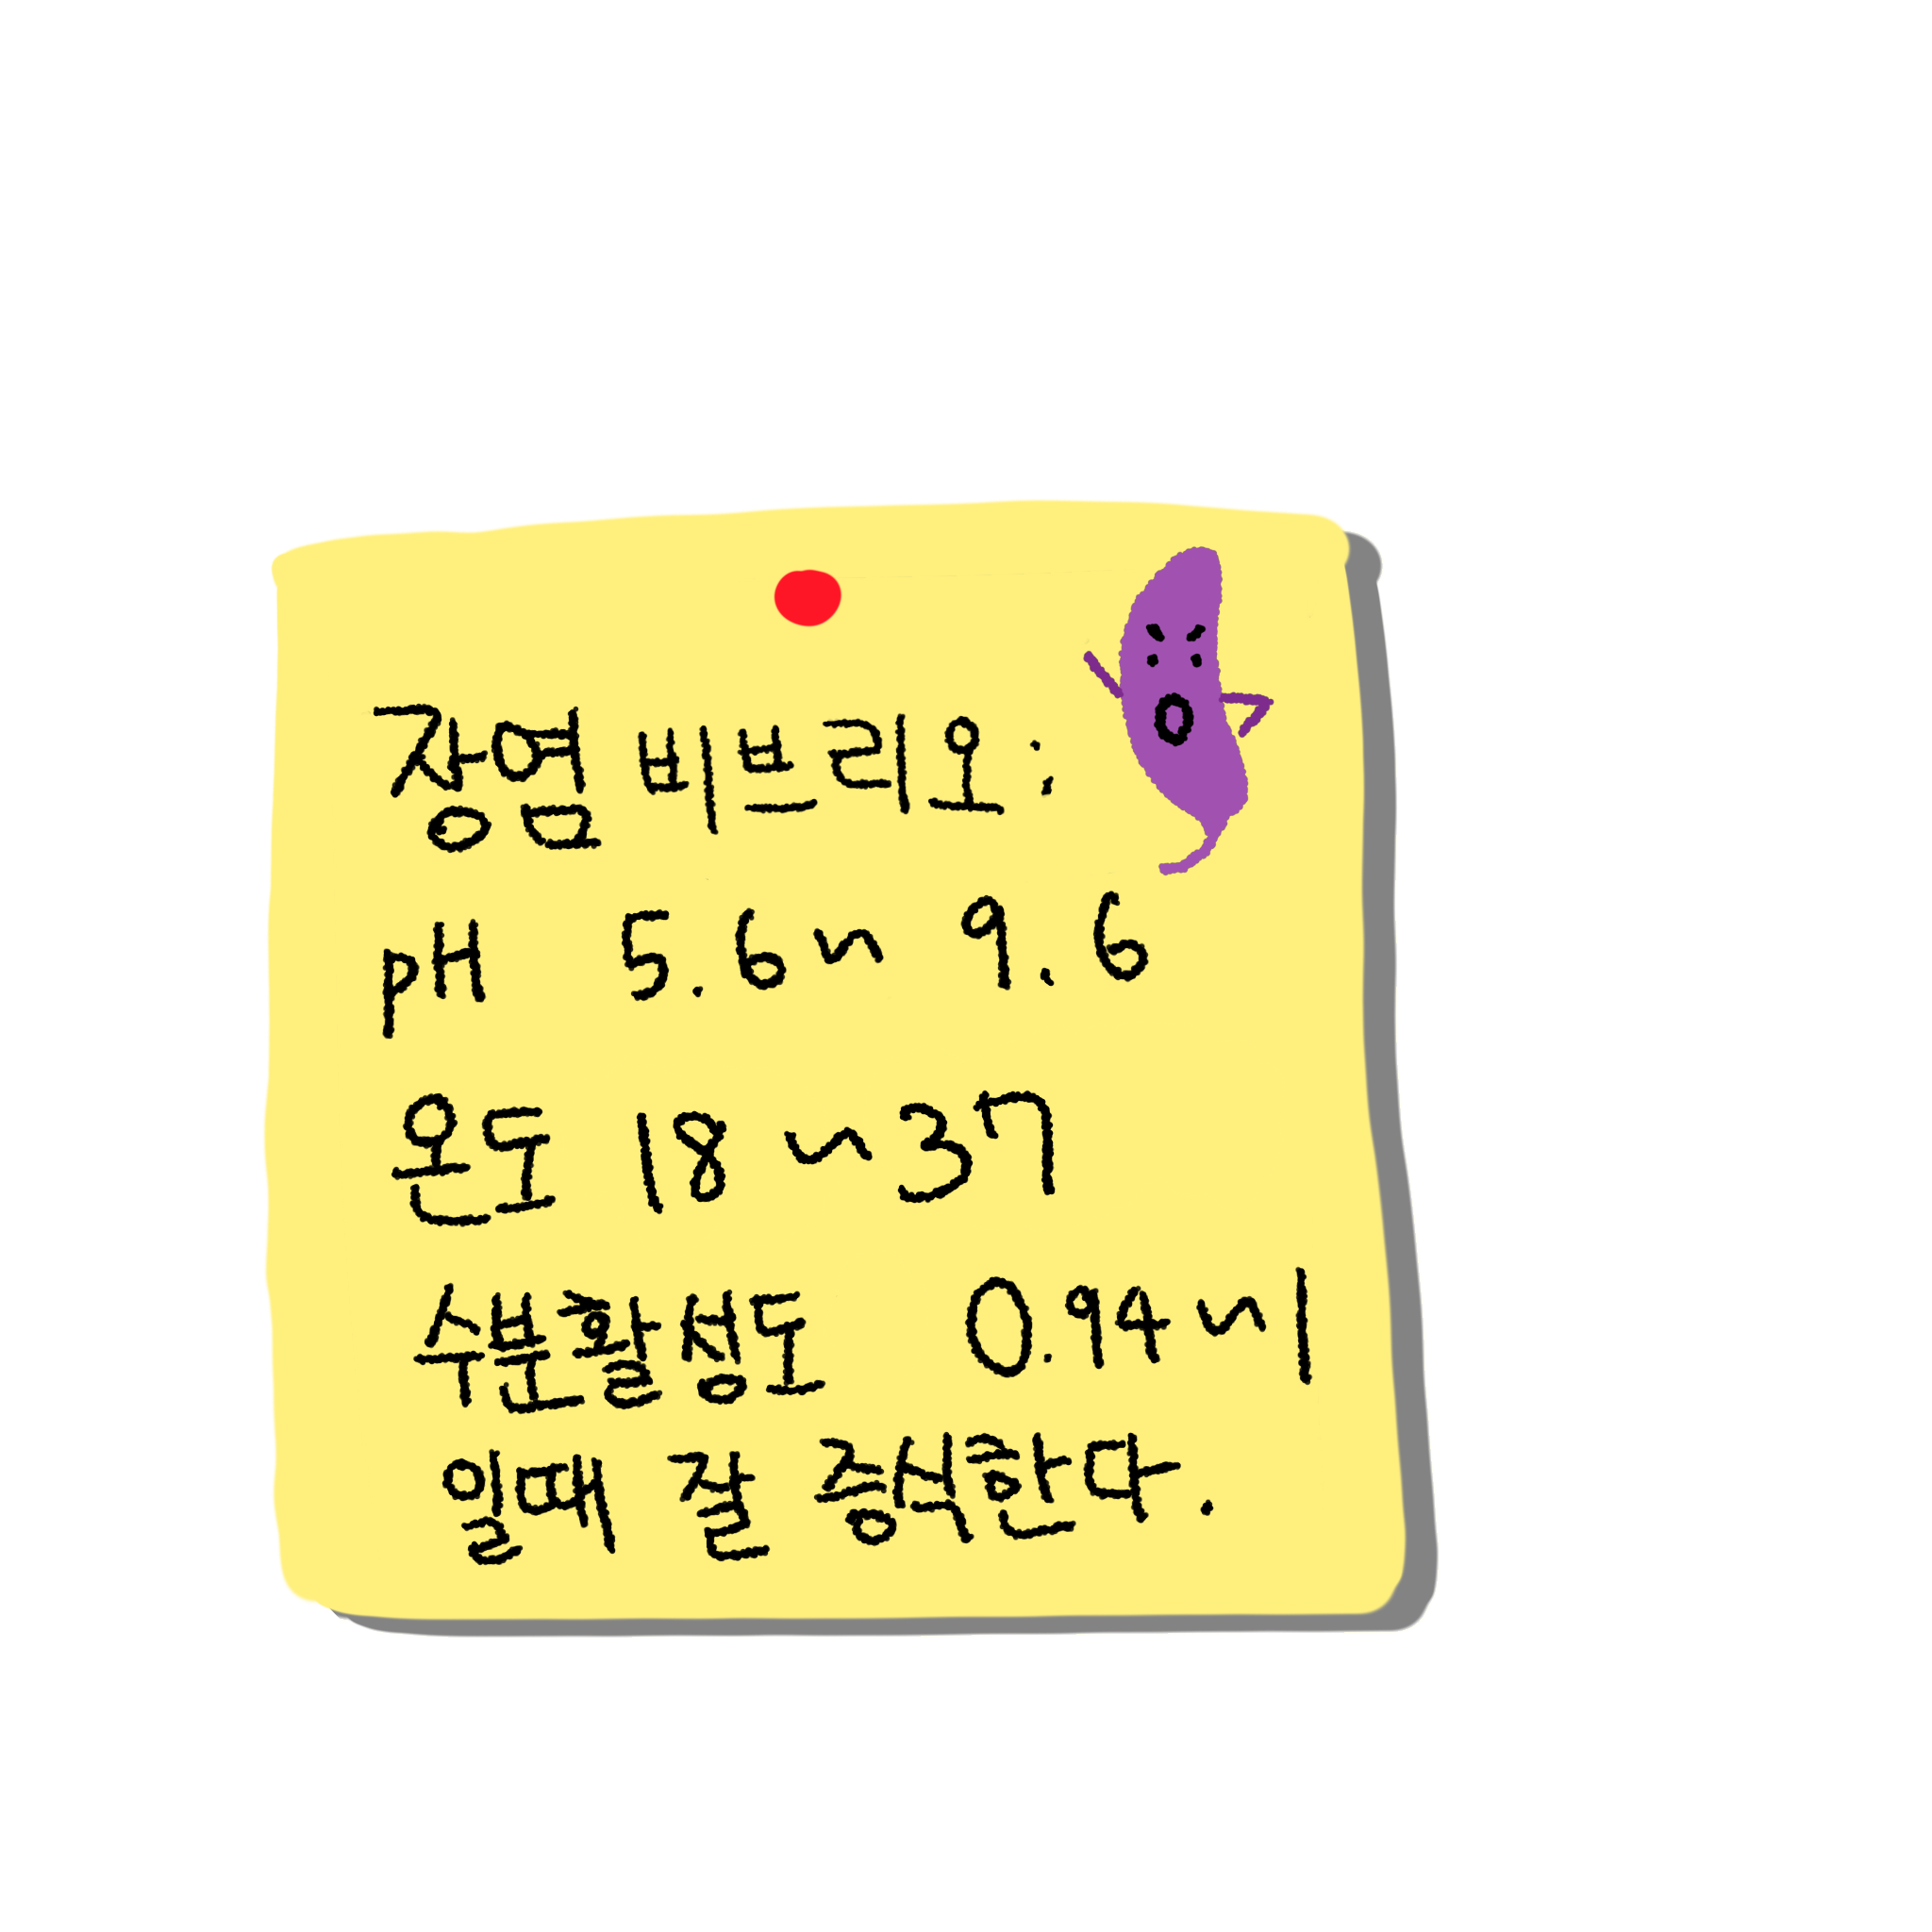 장염 비브리오 :
pH 5.6 ~ 9.6
온도 18 ~ 37
수분활성도 0.94 ~ 1
일때 잘 증식한다.